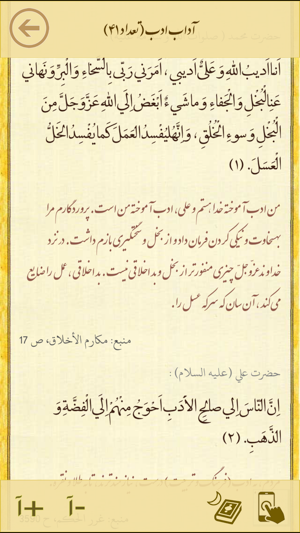 آداب ادب (تعداد ۴۱)
اَنَا اَدیبُ اللهِ وَ عَلیٌّ اَدیبی، اَمَرَنی رَبّی بِالسَّخاءِ وَ الْبِرِّ وَ نَهانی
عَنِ الْبُخْلِ وَ الْجَفاءِ وَ ما شَیءٌ اَبْغَضُ اِلَی اللهِ عَزَّوَجَلَّ مِنَ
الْبُخْلِ وَ سوءِ الْخُلْقِ، وَ اِنَّهُ لَیُفْسِدُ الْعَمَلَ کَما یُفْسِدُ الْخَلُّ
الْعَسَلَ. (۱)
من ادب آموخته خدا هستم و علی، ادب آموخته من است. پروردگارم مرا
به سخاوت و نیکی کردن فرمان داد و از بخل و سختگیری بازم داشت. در نزد
خداوند عزوجل چیزی منفورتر از بخل و بد اخلاقی نیست. بد اخلاقی، عمل را ضایع
می کند، آن سان که سرکه عسل را.
منبع: مکارم الأخلاق، ص 17
حضرت علي (علیه السلام) :
اِنَّ النّاسَ اِلی صالِحِ الْاَدَبِ اَحْوَجُ مِنْهُمْ اِلَی الْفِضَّةِ وَ
الذَّهَبِ. (۲)
آ+ آ-